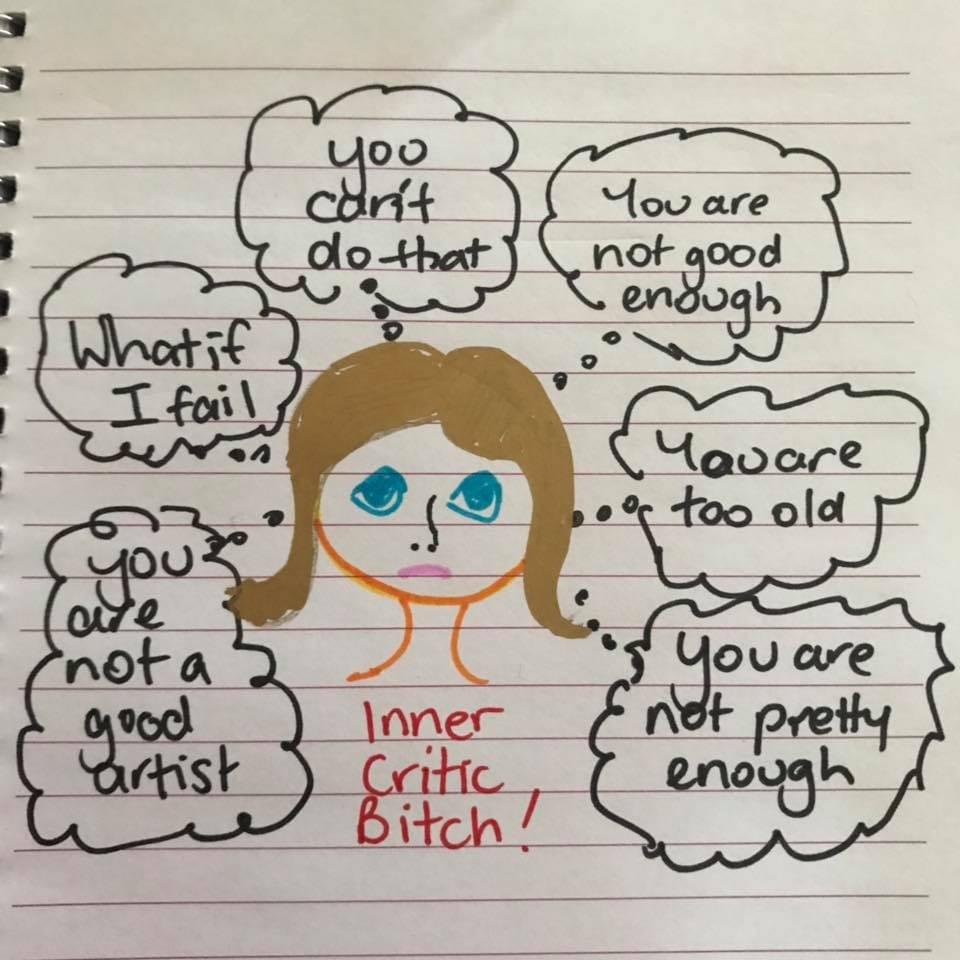 you
can't
do that
You are
not good
enough
What if
I fail
You are
too old
you
are
not a
good
artist
you are
not pretty
enough
Inner
Critic
Bitch!